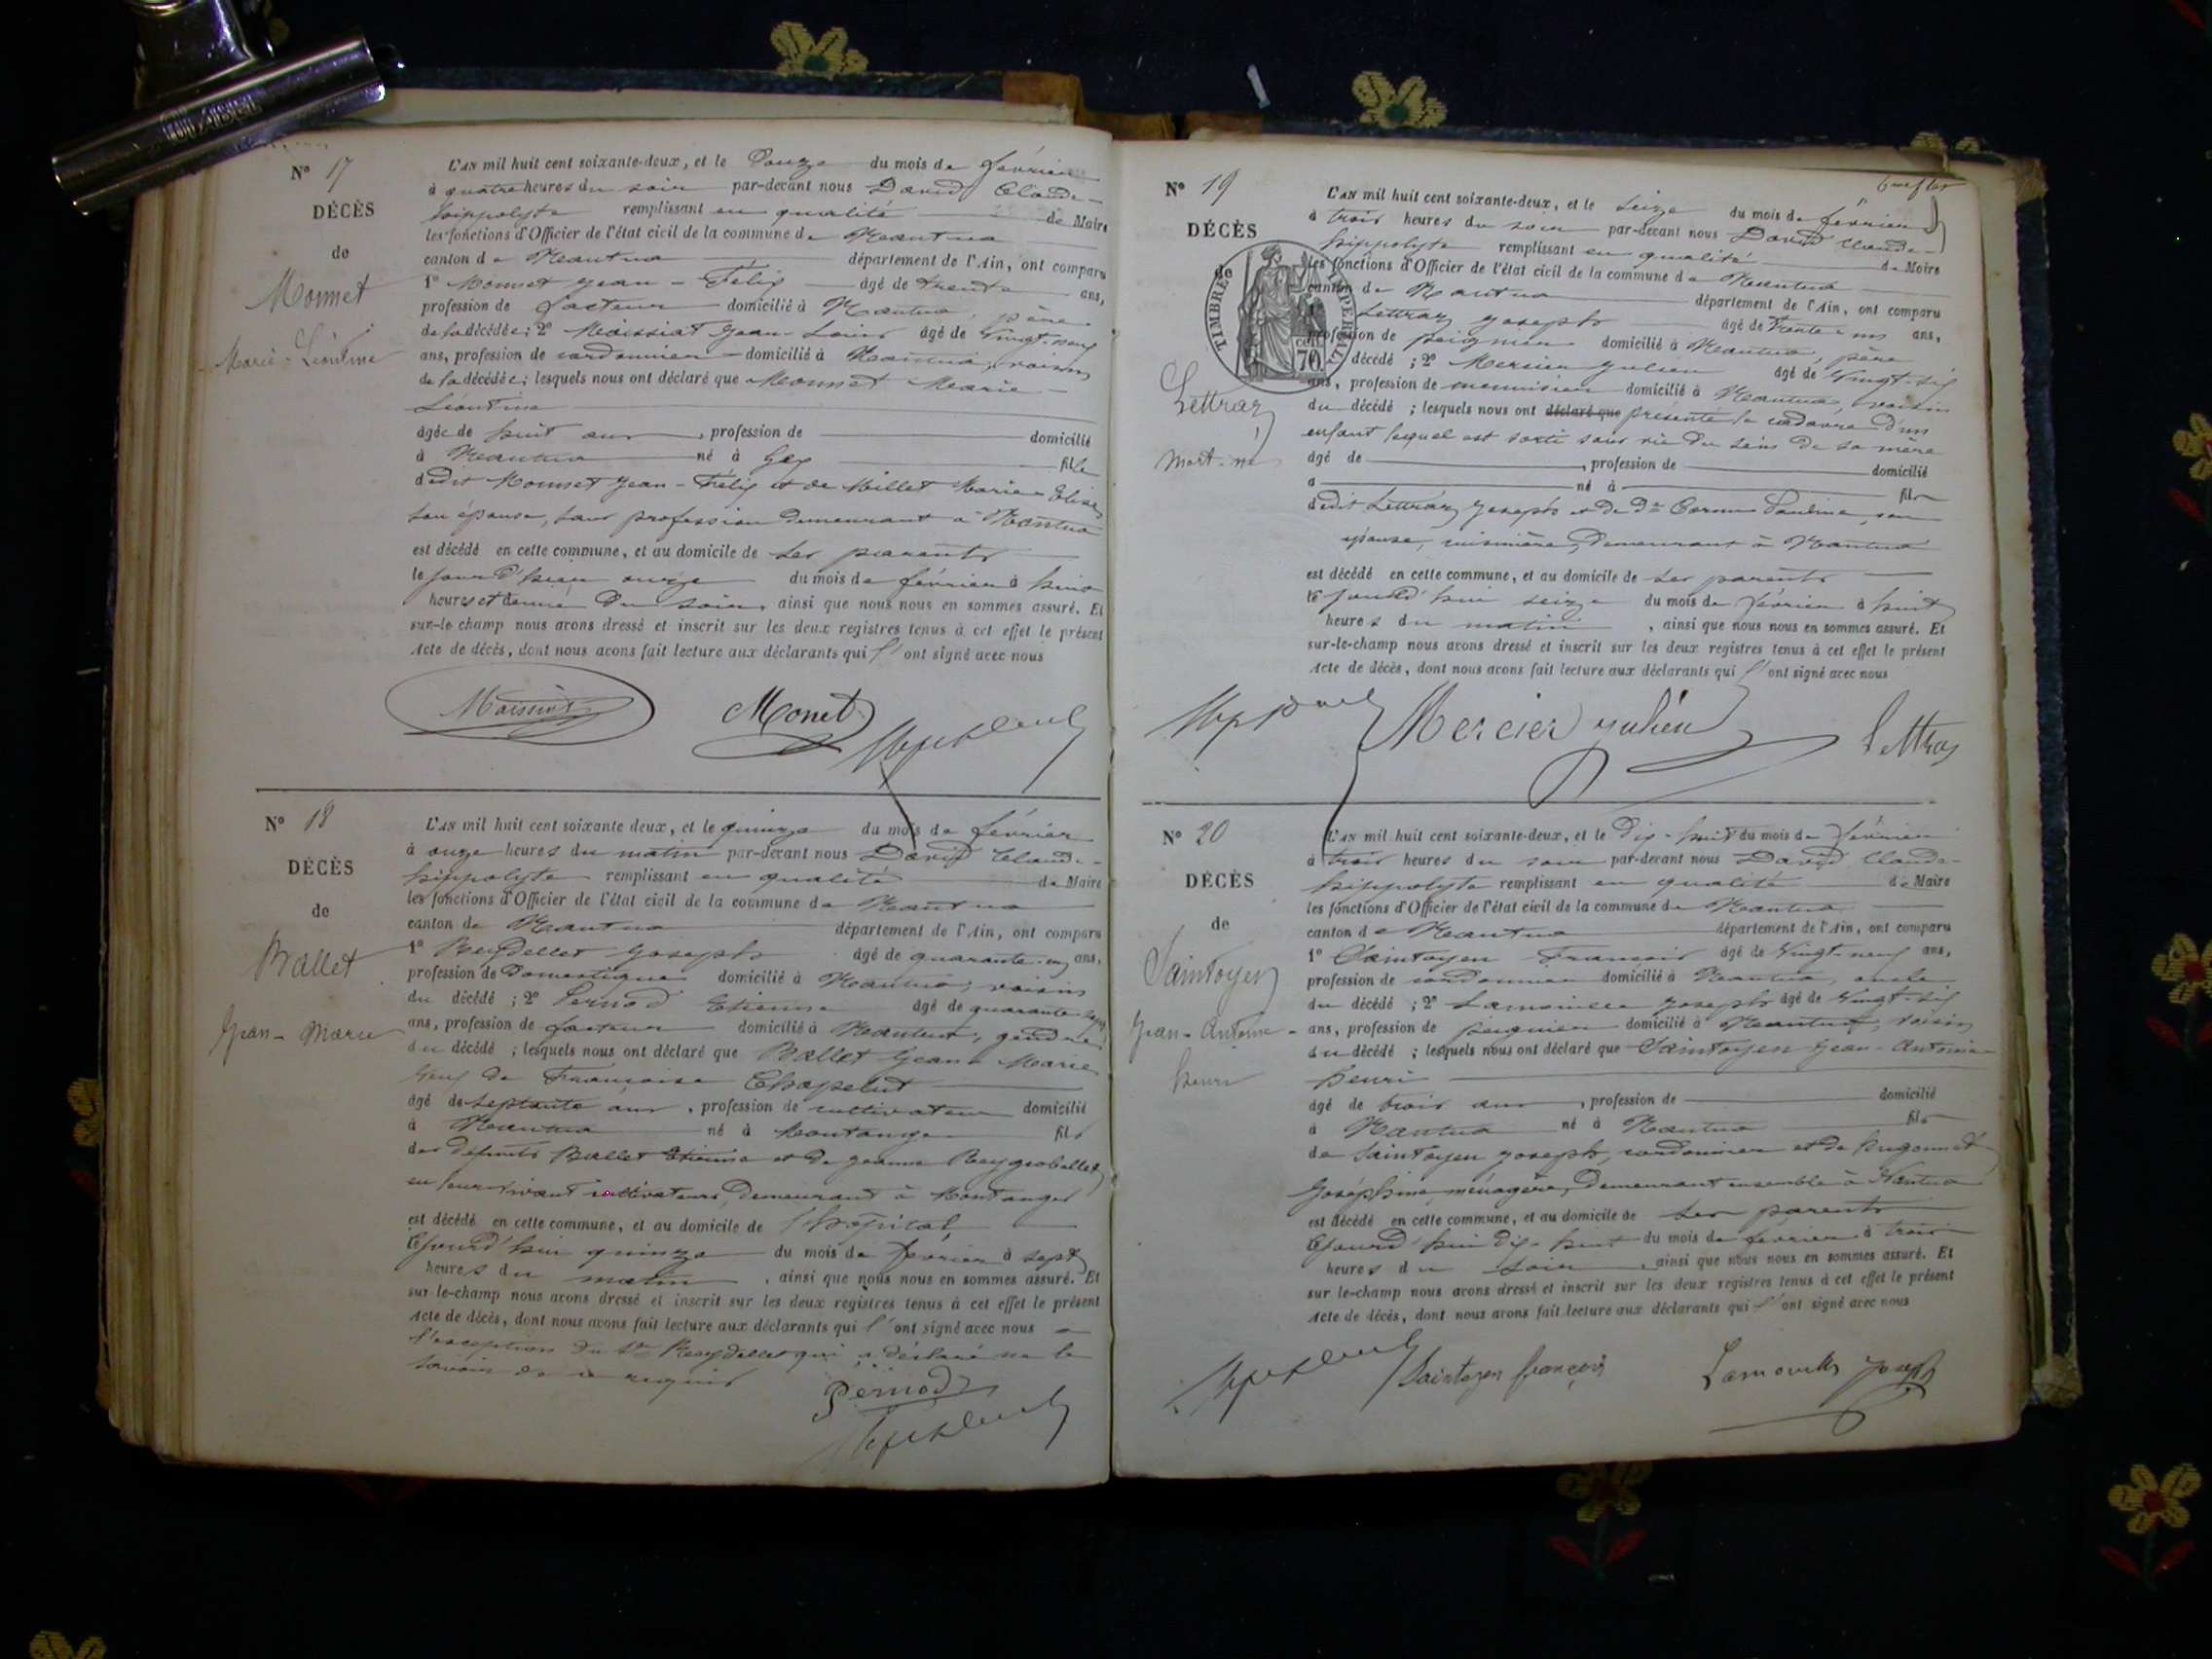 N° 17
DÉCÈS
de
Monnet
Marie-Léontine
L'AN mil huit cent soixante-deux, et le Douze du mois de février
à quatre heures du soir par-devant nous David Claude-
hippolyte remplissant en qualité de Maire
les fonctions d'Officier de l'état civil de la commune de Nantua
canton de Nantua département de l'Ain, ont comparu
1° Monnet Jean-Félix âgé de trente ans,
profession de facteur domicilié à Nantua, père
de la décédée; 2° Maissiat Jean-Louis âgé de Vingt-neuf
ans, profession de cordonnier domicilié à Nantua, voisin
de la décédée; lesquels nous ont déclaré que Monnet Marie
Léontine
âgée de huit ans, profession de domicilié
à Nantua né à Gex fille
dudit Monnet Jean-Félix et de Millet Marie-Elise
son épouse, sans profession demeurant à Nantua
est décédé en cette commune, et au domicile de ses parents
le jour d'hier onze du mois de février à
heures et demie du soir, ainsi que nous nous en sommes assuré. Et
sur-le-champ nous avons dressé et inscrit sur les deux registres tenus à cet effet le présent
Acte de décès, dont nous avons fait lecture aux déclarants qui l'ont signé avec nous
Maissiat Monet
N° 18
DÉCÈS
de
Ballet
Jean-Marie
L'AN mil huit cent soixante deux, et le quinze du mois de février
à onze heures du matin par-devant nous David Claude-
hippolyte remplissant en qualité de Maire
les fonctions d'Officier de l'état civil de la commune de Nantua
canton de Nantua département de l'Ain, ont comparu
1° Reydellet Joseph âgé de quarante-un ans,
profession de Domestique domicilié à Nantua, voisin
du décédé; 2° Pernod Etienne âgé de quarante-sept
ans, profession de facteur domicilié à Nantua, gendre
du décédé; lesquels nous ont déclaré que Ballet Jean-Marie
Veuf de Françoise Chapelut
âgé de septante ans, profession de cultivateur domicilié
à Nantua né à Montanges fils
des défunts Ballet Etienne et de Jeanne
en leur vivant cultivateurs, demeurant à Montanges
est décédé en cette commune, et au domicile de l'hôpital,
cejourd'hui quinze du mois de février à sept
heures du matin, ainsi que nous nous en sommes assuré. Et
sur le-champ nous avons dressé et inscrit sur les deux registres tenus à cet effet le présent
Acte de décès, dont nous avons fait lecture aux déclarants qui l'ont signé avec nous à
l'exception du Sr Reydellet qui a déclaré ne le
savoir de ce requis
Pernod
N° 19
DÉCÈS
de
TIMBRE IMPERIAL
70 cent
Lettraz
mort-né
L'AN mil huit cent soixante-deux, et le seize du mois de février
à trois heures du soir par-devant nous David Claude-
hippolyte remplissant en qualité de Maire
les fonctions d'Officier de l'état civil de la commune de Nantua
canton de Nantua département de l'Ain, ont comparu
Lettraz Joseph âgé de Trente-un ans,
profession de peignier domicilié à Nantua, père
décédé; 2° Mercier Julien âgé de Vingt-six
ans, profession de menuisier domicilié à Nantua, voisin
du décédé; lesquels nous ont déclaré que présenté le cadavre d'un
enfant lequel est sorti sans vie du sein de sa mère
âgé de, profession de domicilié
à né à fils
dudit Lettraz Joseph et de Dme Pauline, son
épouse, cuisinière, demeurant à Nantua
est décédé en cette commune, et au domicile de ses parents
cejourd'hui seize du mois de février à huit
heures du matin, ainsi que nous nous en sommes assuré. Et
sur-le-champ nous avons dressé et inscrit sur les deux registres tenus à cet effet le présent
Acte de décès, dont nous avons fait lecture aux déclarants qui l'ont signé avec nous
Mercier Julien Lettraz
N° 20
DÉCÈS
de
Saintoyen
Jean-Antoine-
henri
L'AN mil huit cent soixante-deux, et le Dix-huit du mois de février
à trois heures du soir par-devant nous David Claude-
hippolyte remplissant en qualité de Maire
les fonctions d'Officier de l'état civil de la commune de Nantua
canton de Nantua département de l'Ain, ont comparu
1° Saintoyen François âgé de Vingt-neuf ans,
profession de cordonnier domicilié à Nantua, oncle
du décédé; 2° Lamouille Joseph âgé de Vingt-six
ans, profession de peignier domicilié à Nantua, voisin
du décédé; lesquels nous ont déclaré que Saintoyen Jean-Antoine
henri
âgé de trois ans, profession de domicilié
à Nantua né à Nantua fils
de Saintoyen Joseph, cordonnier et de hugonnet
Joséphine ménagère, demeurant ensemble à Nantua
est décédé en cette commune, et au domicile de ses parents
cejourd'hui dix-huit du mois de février à trois
heures du soir, ainsi que nous nous en sommes assuré. Et
sur-le-champ nous avons dressé et inscrit sur les deux registres tenus à cet effet le présent
Acte de décès, dont nous avons fait lecture aux déclarants qui l'ont signé avec nous
Saintoyen françois Lamouille Joseph